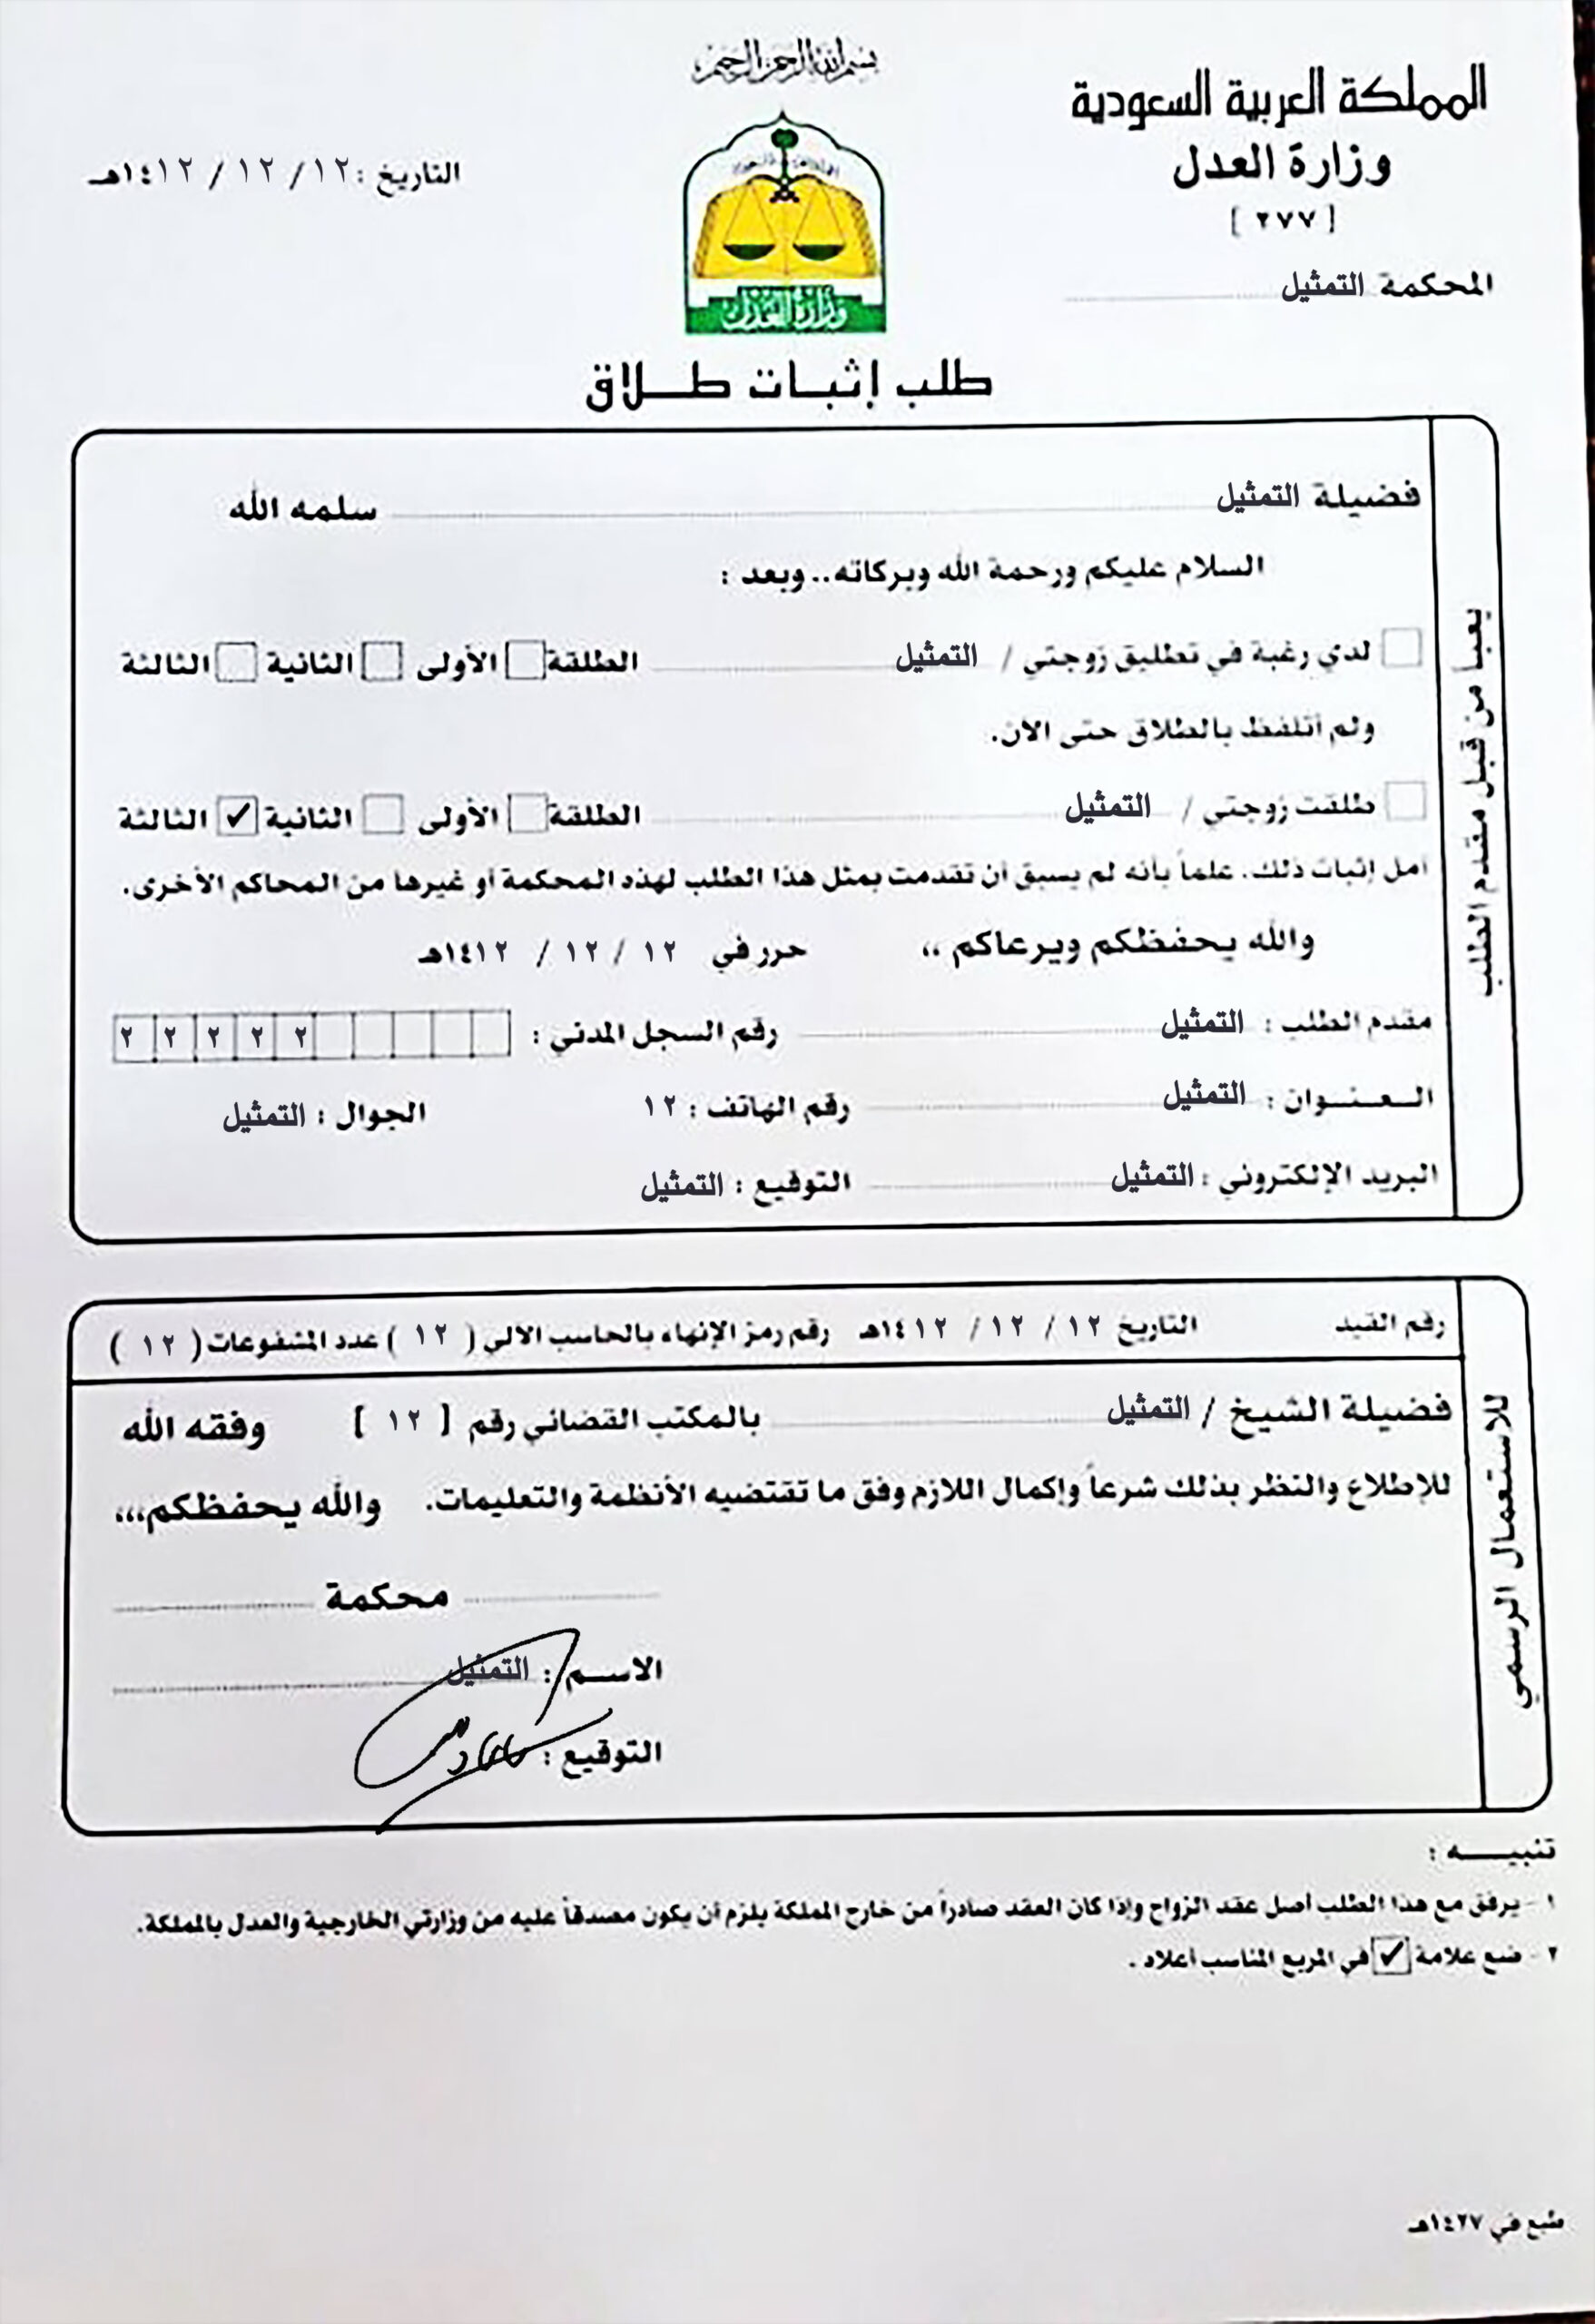 بسم الله الرحمن الرحيم
المملكة العربية السعودية
وزارة العدل
[ ٢٧٧ ]
المحكمة التمثيل
التاريخ : ١٢ / ١٢ / ١٤١٢هـ
وزارة العدل
طلب إثبات طلاق
يعبأ من قبل مقدم الطلب
فضيلة التمثيل سلمه الله
السلام عليكم ورحمة الله وبركاته.. وبعد :
لدي رغبة في تطليق زوجتي / التمثيل الطلقة الأولى الثانية الثالثة
ولم أتلفظ بالطلاق حتى الآن.
طلقت زوجتي / التمثيل الطلقة الأولى الثانية ✓ الثالثة
آمل إثبات ذلك. علماً بأنه لم يسبق أن تقدمت بمثل هذا الطلب لهذه المحكمة أو غيرها من المحاكم الأخرى.
والله يحفظكم ويرعاكم ،، حرر في ١٢ / ١٢ / ١٤١٢هـ
مقدم الطلب : التمثيل رقم السجل المدني : ٢ ٢ ٢ ٢ ٢
العـنـوان : التمثيل رقم الهاتف : ١٢ الجوال : التمثيل
البريد الإلكتروني : التمثيل التوقيع : التمثيل
للاستعمال الرسمي
رقم القيد التاريخ ١٢ / ١٢ / ١٤١٢هـ رقم رمز الإنهاء بالحاسب الآلي ( ١٢ ) عدد المشفوعات ( ١٢ )
فضيلة الشيخ / التمثيل بالمكتب القضائي رقم [ ١٢ ] وفقه الله
للإطلاع والنظر بذلك شرعاً وإكمال اللازم وفق ما تقتضيه الأنظمة والتعليمات. والله يحفظكم،،،
محكمة
الاسـم : التمثيل
التوقيع :
تنبيـــه :
١ - يرفق مع هذا الطلب أصل عقد الزواج وإذا كان العقد صادراً من خارج المملكة يلزم أن يكون مصدقاً عليه من وزارتي الخارجية والعدل بالمملكة.
٢ - ضع علامة ✓ في المربع المناسب أعلاه .
طبع في ١٤٢٧هـ